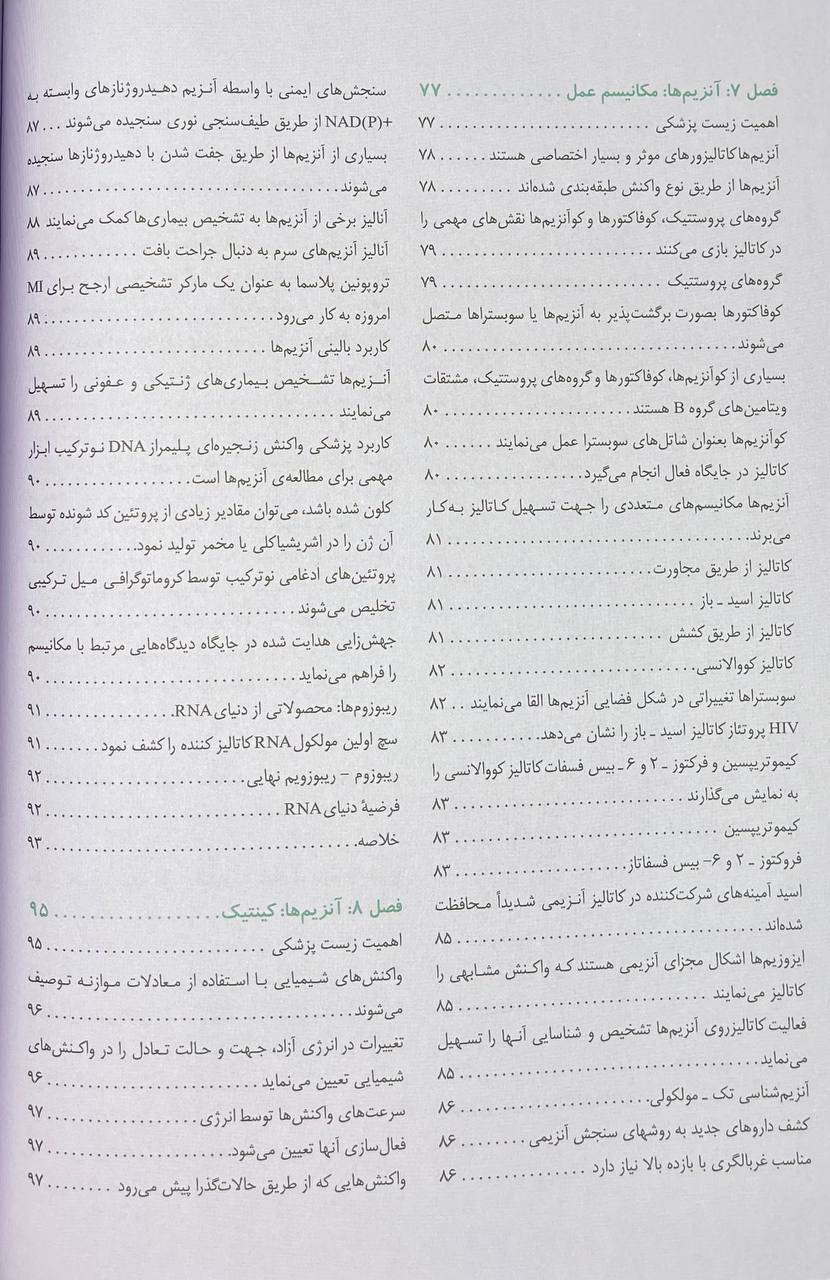 فصل ۷: آنزیم‌ها: مکانیسم عمل ............. ۷۷
اهمیت زیست پزشکی ............................ ۷۷
آنزیم‌ها کاتالیزورهای موثر و بسیار اختصاصی هستند ...... ۷۸
آنزیم‌ها از طریق نوع واکنش طبقه‌بندی شده‌اند ......... ۷۸
گروه‌های پروستتیک، کوفاکتورها و کوآنزیم‌ها نقش‌های مهمی را
در کاتالیز بازی می‌کنند ............................ ۷۹
گروه‌های پروستتیک ............................ ۷۹
کوفاکتورها بصورت برگشت‌پذیر به آنزیم‌ها یا سوبستراها متصل
می‌شوند ............................ ۸۰
بسیاری از کوآنزیم‌ها، کوفاکتورها و گروه‌های پروستتیک، مشتقات
ویتامین‌های گروه B هستند ............................ ۸۰
کوآنزیم‌ها بعنوان شاتل‌های سوبسترا عمل می‌نمایند ...... ۸۰
کاتالیز در جایگاه فعال انجام می‌گیرد .................. ۸۰
آنزیم‌ها مکانیسم‌های متعددی را جهت تسهیل کاتالیز به‌کار
می‌برند ............................ ۸۱
کاتالیز از طریق مجاورت ........................ ۸۱
کاتالیز اسید ـ باز ............................ ۸۱
کاتالیز از طریق کشش ........................ ۸۱
کاتالیز کووالانسی ............................ ۸۲
سوبستراها تغییراتی در شکل فضایی آنزیم‌ها القا می‌نمایند .. ۸۲
HIV پروتئاز کاتالیز اسید ـ باز را نشان می‌دهد ............ ۸۳
کیموتریپسین و فرکتوز ـ ۲ و ۶ ـ بیس فسفات کاتالیز کووالانسی را
به نمایش می‌گذارند ........................ ۸۳
کیموتریپسین ............................ ۸۳
فروکتوز ـ ۲ و ۶– بیس فسفاتاز ..................... ۸۳
اسید آمینه‌های شرکت‌کننده در کاتالیز آنزیمی شدیداً محافظت
شده‌اند ............................ ۸۵
ایزوزیم‌ها اشکال مجزای آنزیمی هستند که واکنش مشابهی را
کاتالیز می‌نمایند ........................ ۸۵
فعالیت کاتالیزروی آنزیم‌ها تشخیص و شناسایی آنها را تسهیل
می‌نماید ............................ ۸۵
آنزیم‌شناسی تک ـ مولکولی ........................ ۸۶
کشف داروهای جدید به روشهای سنجش آنزیمی ........ ۸۶
مناسب غربالگری با بازده بالا نیاز دارد ............... ۸۶
سنجش‌های ایمنی با واسطه آنزیم دهیدروژنازهای وابسته به
NAD(P)+ از طریق طیف‌سنجی نوری سنجیده می‌شوند ... ۸۷
بسیاری از آنزیم‌ها از طریق جفت شدن با دهیدروژنازها سنجیده
می‌شوند ............................ ۸۷
آنالیز برخی از آنزیم‌ها به تشخیص بیماری‌ها کمک می‌نمایند ۸۸
آنالیز آنزیم‌های سرم به دنبال جراحت بافت ............ ۸۹
تروپونین پلاسما به عنوان یک مارکر تشخیصی ارجح برای MI
امروزه به کار می‌رود ............................ ۸۹
کاربرد بالینی آنزیم‌ها ........................ ۸۹
آنزیم‌ها تشخیص بیماری‌های ژنتیکی و عفونی را تسهیل
می‌نمایند ............................ ۸۹
کاربرد پزشکی واکنش زنجیره‌ای پلیمراز DNA نوترکیب ابزار
مهمی برای مطالعه‌ی آنزیم‌ها است .................. ۹۰
کلون شده باشد، می‌توان مقادیر زیادی از پروتئین کد شونده توسط
آن ژن را در اشریشیاکلی یا مخمر تولید نمود ............ ۹۰
پروتئین‌های ادغامی نوترکیب توسط کروماتوگرافی میل ترکیبی
تخلیص می‌شوند ............................ ۹۰
جهش‌زایی هدایت شده در جایگاه دیدگاه‌هایی مرتبط با مکانیسم
را فراهم می‌نماید ............................ ۹۰
ریبوزوم‌ها: محصولاتی از دنیای RNA ................ ۹۱
سچ اولین مولکول RNA کاتالیز کننده را کشف نمود ....... ۹۱
ریبوزوم – ریبوزویم نهایی ...................... ۹۲
فرضیهٔ دنیای RNA ........................ ۹۲
خلاصه ............................ ۹۳
فصل ۸: آنزیم‌ها: کینتیک .................. ۹۵
اهمیت زیست پزشکی ........................ ۹۵
واکنش‌های شیمیایی با استفاده از معادلات موازنه توصیف
می‌شوند ............................ ۹۶
تغییرات در انرژی آزاد، جهت و حالت تعادل را در واکنش‌های
شیمیایی تعیین می‌نماید ...................... ۹۶
سرعت‌های واکنش‌ها توسط انرژی ................ ۹۷
فعال‌سازی آنها تعیین می‌شود .................. ۹۷
واکنش‌هایی که از طریق حالات‌گذرا پیش می‌رود ........ ۹۷